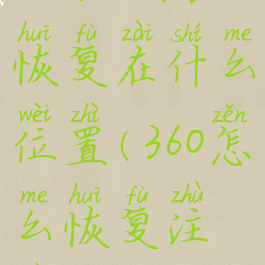 huī fù zài shí me
恢复在什么
wèi zhì zěn
位置(360怎
me huī fù zhù
么恢复注